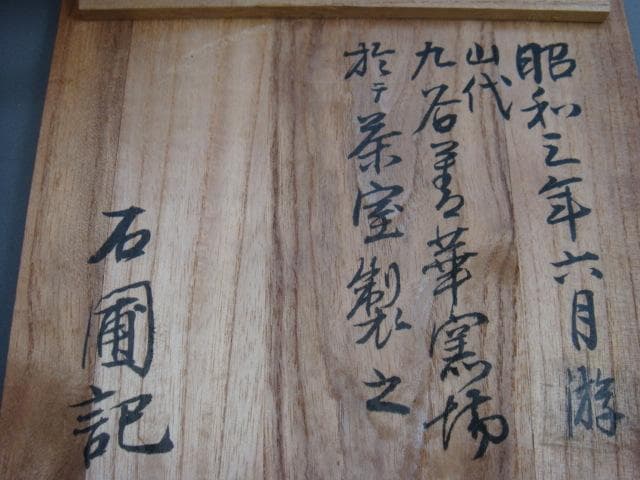 昭和三年六月游
山代
九谷菁華窯場
於テ茶室製之
石圃記